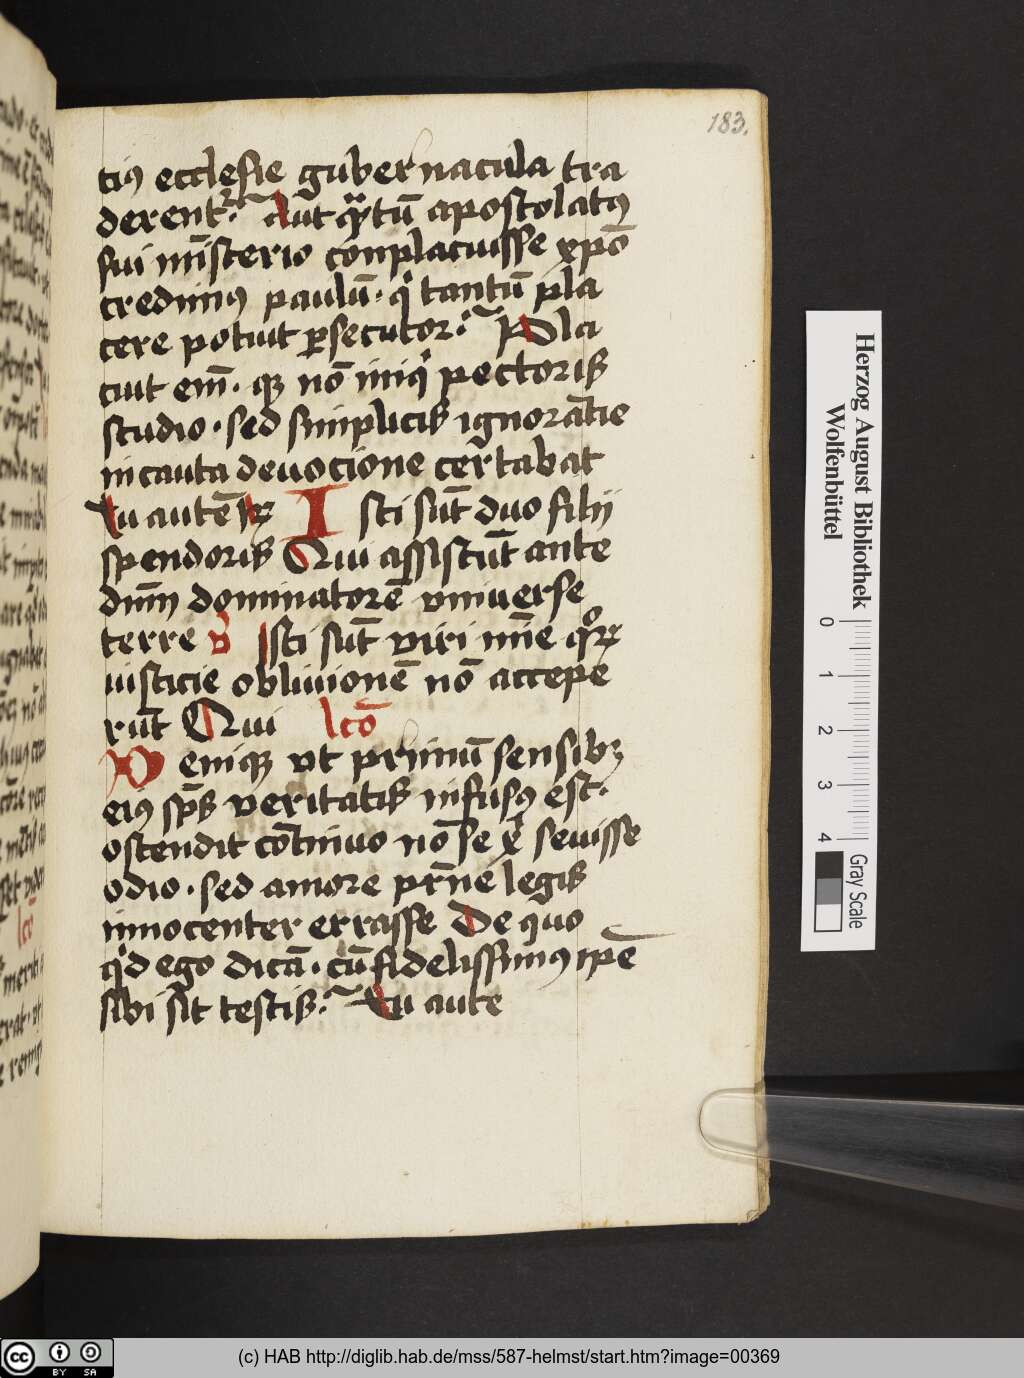 183.
tiꝰ ecclesie gubernacula tra
derentᷣ. Aut qͣntū apostolatꝰ
sui mīsterio conplacuisse xp̄o
credimꝰ paulū · qͥ tantū pla
cere potuit ꝑsecutor. Pla
cuit em̄ · qꝫ nō iniqͥ pectoris
studio · sed simplicis ignorātie
incauta deuocione certabat
Tu autē Isti sūt duo filij
splendoris Qui assistūt ante
dn̄m dominatorē vniuerse
terre v̓ Isti sūt viri mīe qͦꝝ
iusticie obliuionē nō accepe
rūt Qui lc̄o
Deniqꝫ vt primū sensibꝫ
eiꝰ sp̄s veritatis infusꝰ est ·
ostendit cōtinuo nō se xͥ seuisse
odio · sed amore pr̄ne legis
innocenter errasse De quo
qͥd ego dicā · cū fidelissimꝰ ipē
sibi sit testis. Tu aute
Herzog August Bibliothek
Wolfenbüttel
0 1 2 3 4
Gray Scale
(c) HAB http://diglib.hab.de/mss/587-helmst/start.htm?image=00369
cc BY SA